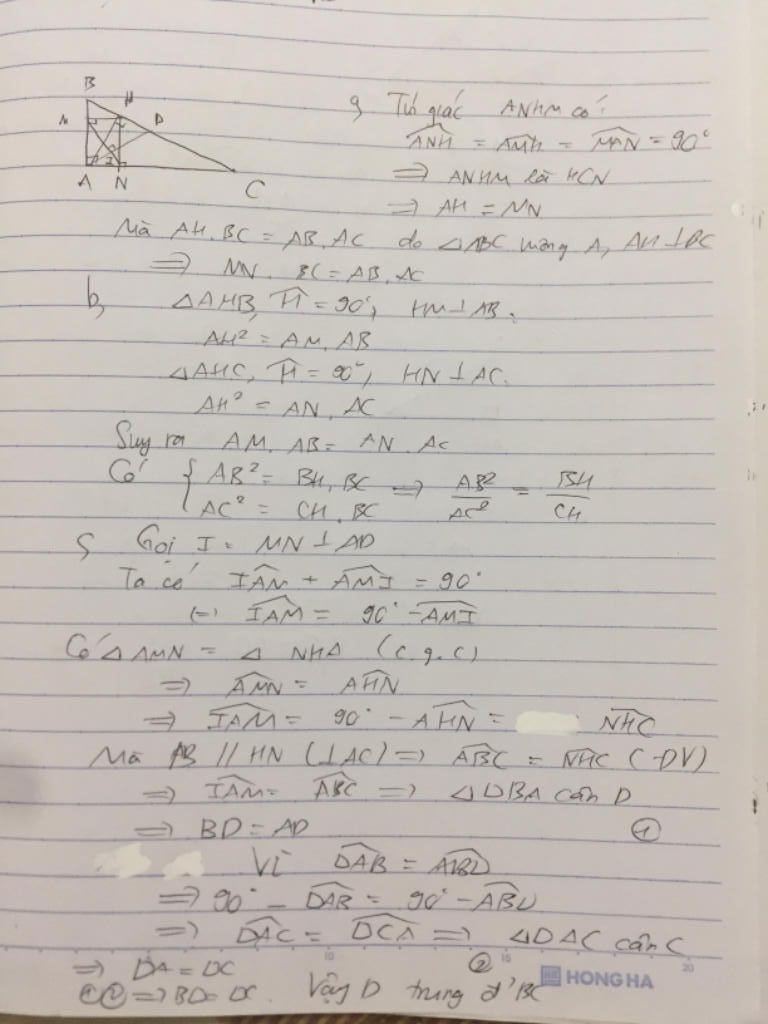 B
M H D
A 2 N C
a, Tứ giác ANHM có:
ANH = AMH = MAN = 90°
⇒ ANHM là HCN
⇒ AH = MN
Mà AH.BC = AB.AC do △ABC vuông A, AH⊥BC
⇒ MN. BC = AB.AC
b, △AHB, H = 90°, HM⊥AB.
AH² = AM.AB
△AHC, H = 90°, HN⊥AC.
AH² = AN.AC
Suy ra AM.AB = AN.AC
Có { AB² = BH.BC ⇒ AB²/AC² = BH/CH
AC² = CH.BC
c, Gọi I = MN⊥AD
Ta có IAM + AMI = 90°
(=) IAM = 90° - AMI
Có △AMN = △ NHA (c.g.c)
⇒ AMN = AHN
⇒ IAM = 90° - AHN = NHC
Mà AB // HN (⊥AC) ⇒ ABC = NHC (ĐV)
⇒ IAM = ABC ⇒ △DBA cân D
⇒ BD = AD ①
Vì DAB = ABD
⇒ 90° - DAB = 90° - ABD
⇒ DAC = DCA ⇒ △DAC cân C
⇒ DA = DC ②
①② ⇒ BD = DC. Vậy D trung đ' BC
10 15 20
HONG HA